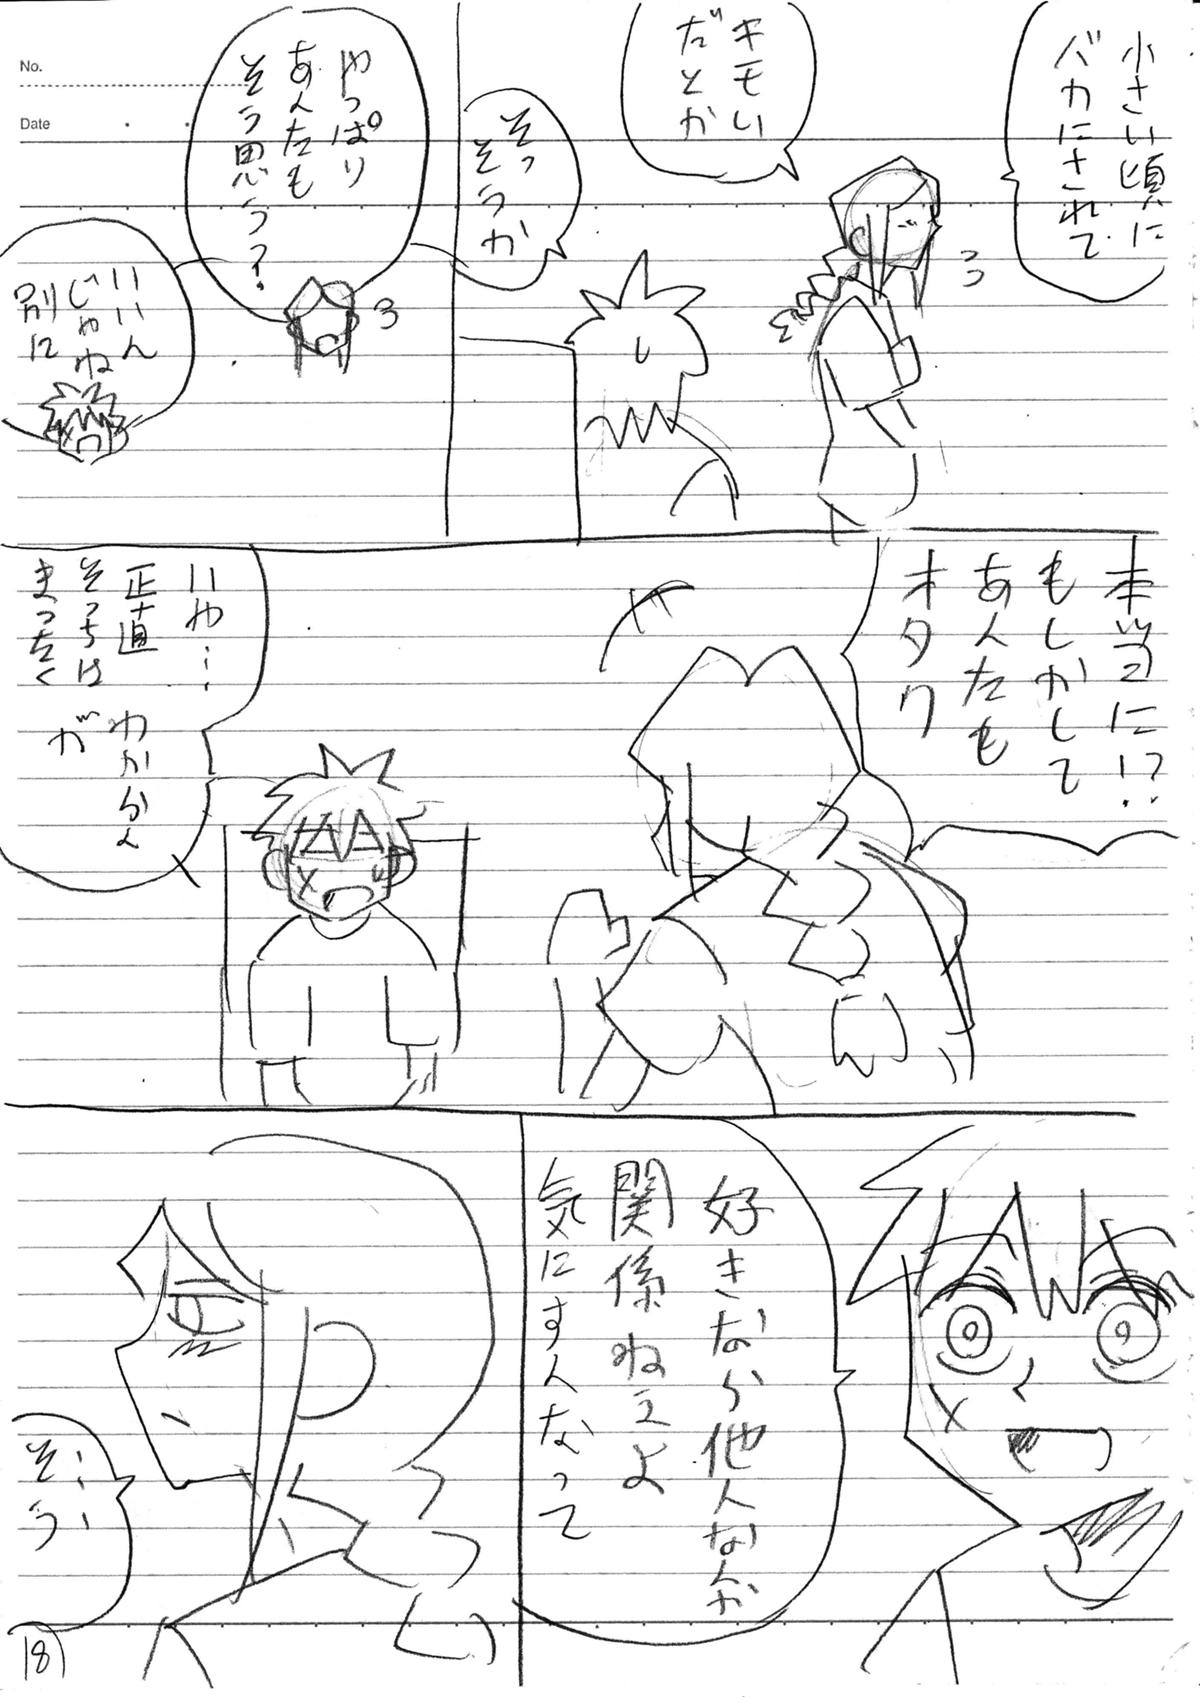 No.
Date
小さい頃に
バカにされて
キモい
だとか
そっ
そうか
やっぱり
あんたも
そう思う?
いいん
じゃね
別に
本当に!?
もしかして
あんたも
オタク
いや…
正直
そっちは
まったく
わからん
が
好きなら他人なんか
関係ねえよ
気にすんなって
……
そう
18